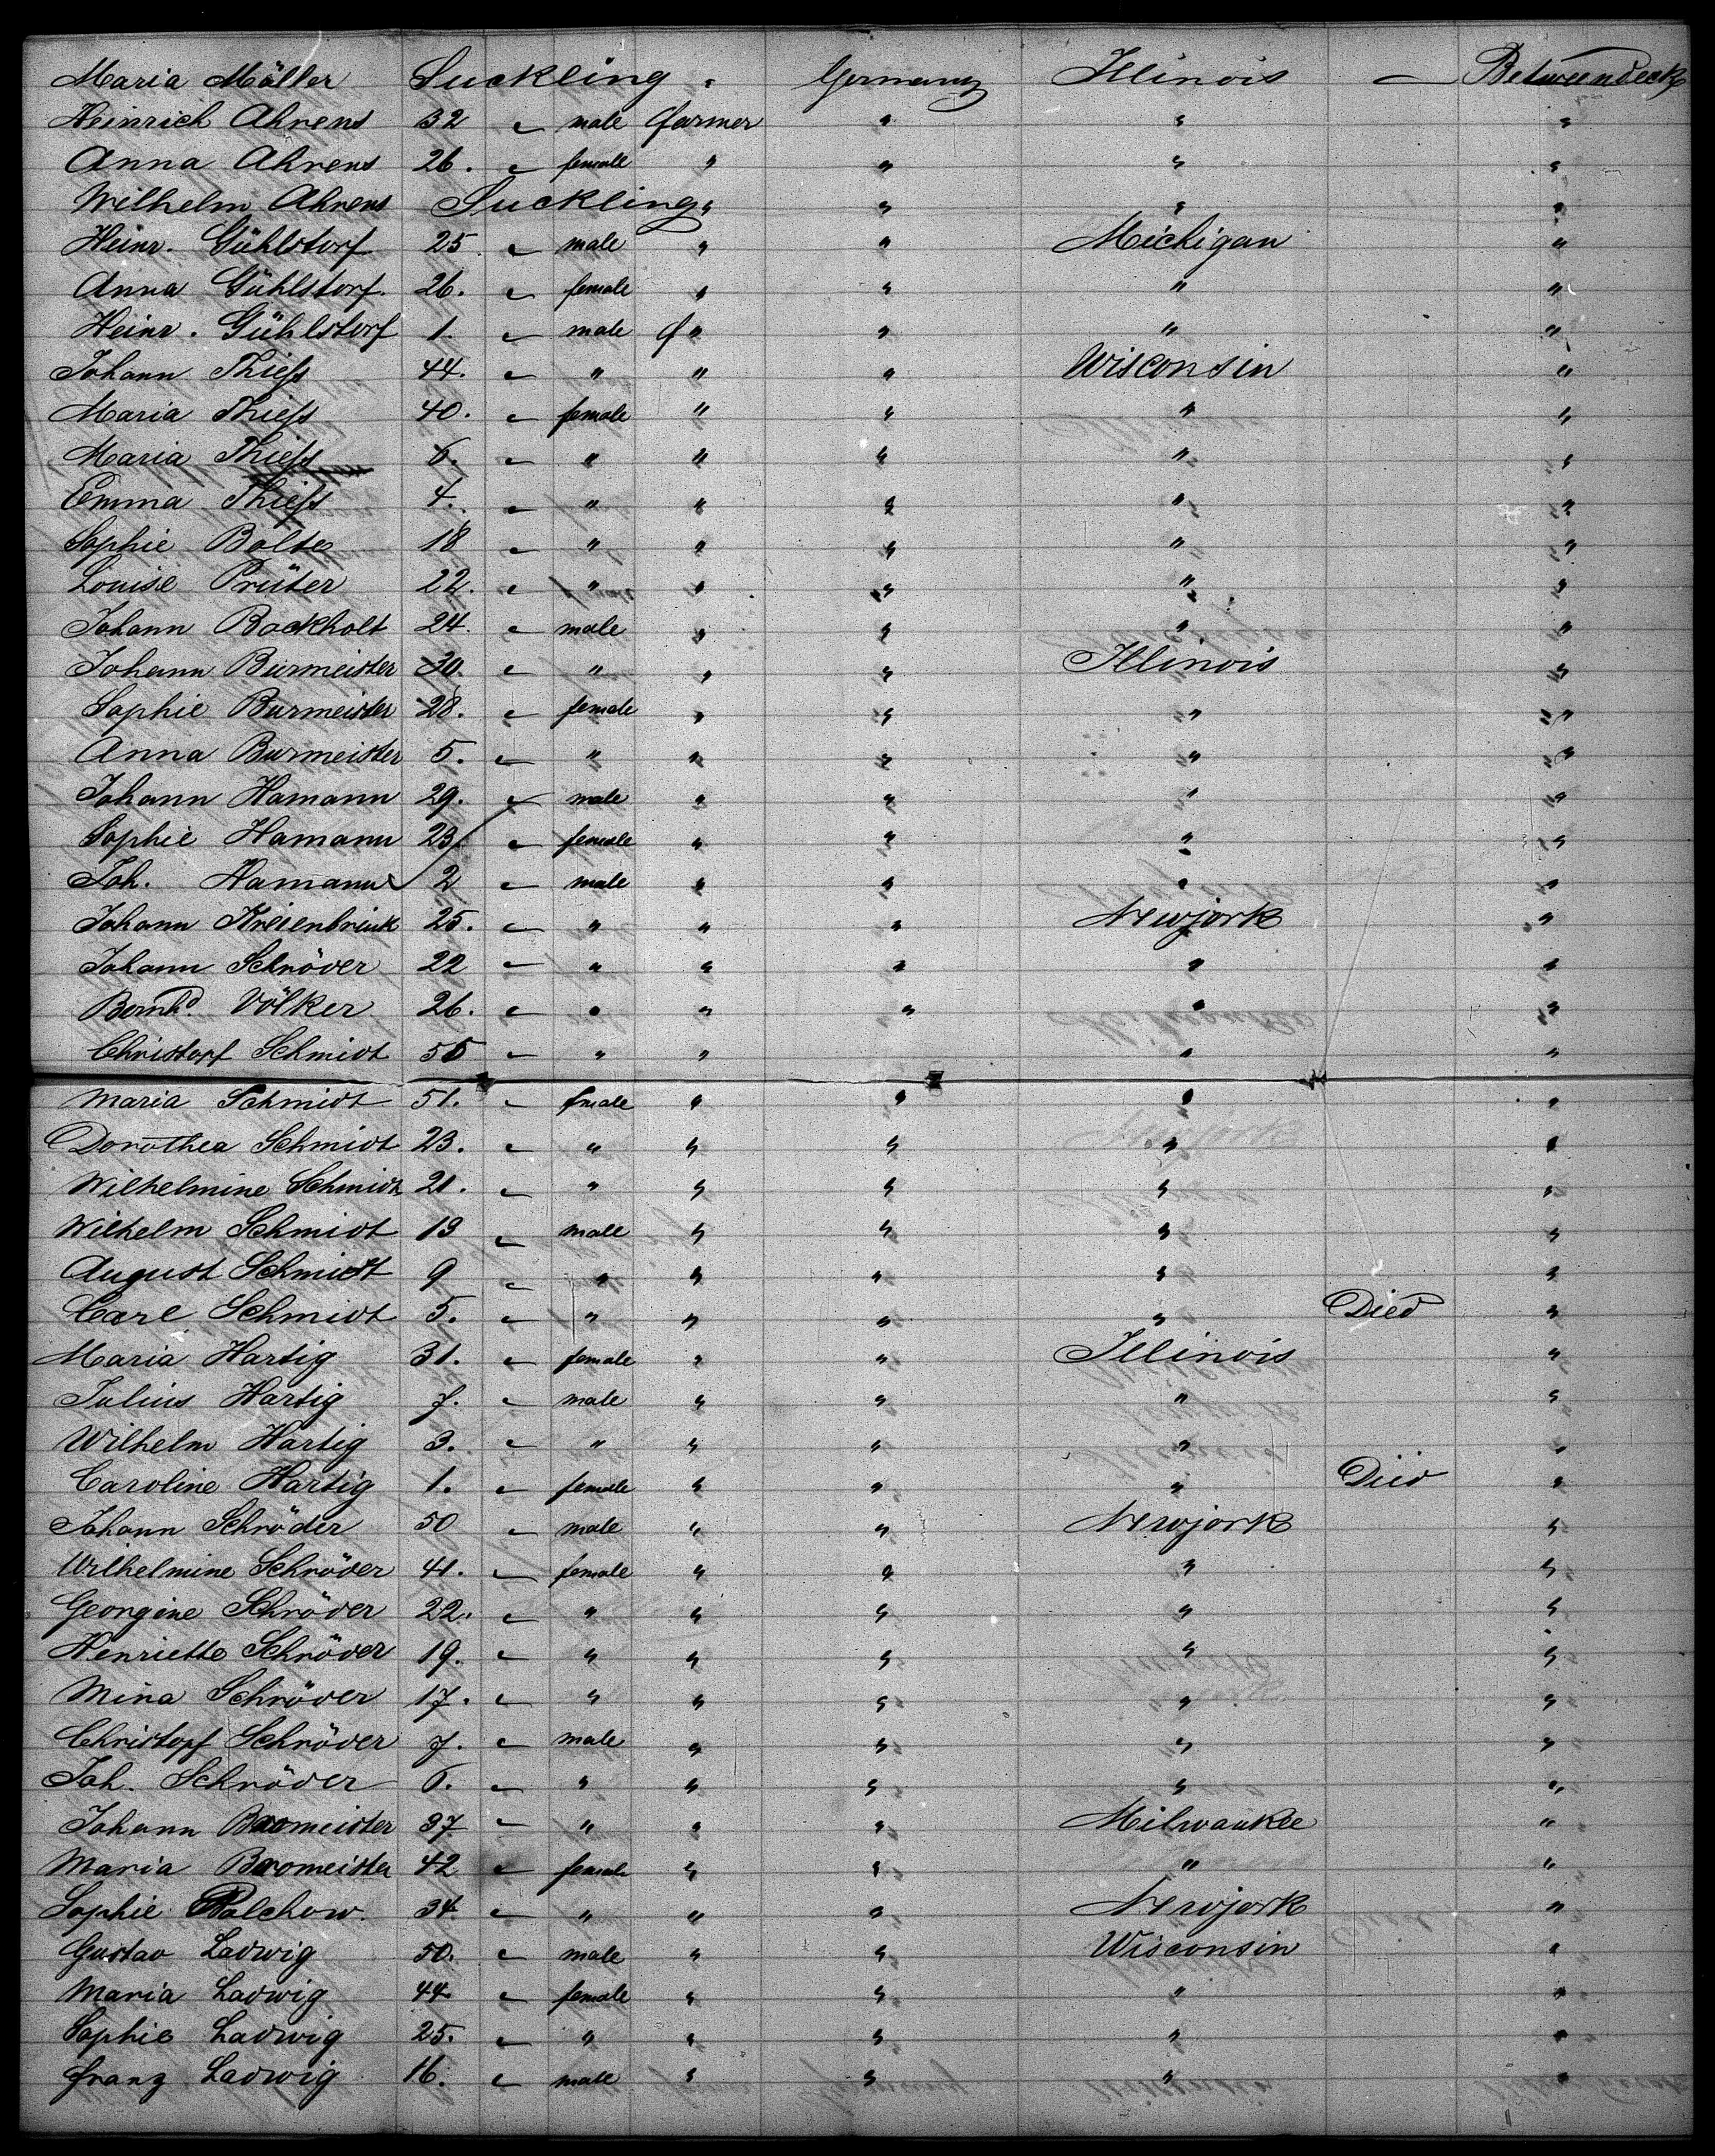 Maria Möller Suckling " Germany Illinois — Betweendeck
Heinrich Ahrens 32 " male farmer " " "
Anna Ahrens 26. " female " " " "
Wilhelm Ahrens Suckling " " " "
Heinr. Gühlstorf 25 " male " " Michigan "
Anna Gühlstorf. 26. " female " " " "
Heinr. Gühlstorf 1. " male " " " "
Johann Thieß 44. " " " " Wisconsin "
Maria Thieß 40. " female " " " "
Maria Thieß 6. " " " " " "
Emma Thieß 4. " " " " " "
Sophie Bolte 18 " " " " " "
Louise Prüter 22. " " " " " "
Johann Bockholt 24. " male " " " "
Johann Burmeister 30. " " " " Illinois "
Sophie Burmeister 28. " female " " " "
Anna Burmeister 5. " " " " " "
Johann Hamann 29. " male " " " "
Sophie Hamann 23 " female " " " "
Joh. Hamann 2 " male " " " "
Johann Kreienbrink 25. " " " " Newjork "
Johann Schröder 22 " " " " " "
Bernhd. Völker 26. " " " " " "
Christorf Schmidt 55 " " " " " "
Maria Schmidt 51. " fmale " " " "
Dorothea Schmidt 23. " " " " " "
Wilhelmine Schmidt 21. " " " " " "
Wilhelm Schmidt 19 " male " " " "
August Schmidt 9 " " " " " "
Carl Schmidt 5. " " " " " Died "
Maria Hartig 31. " female " " Illinois "
Julius Hartig 7. " male " " " "
Wilhelm Hartig 3. " " " " " "
Caroline Hartig 1. " female " " " Died "
Johann Schröder 50 " male " " Newjork "
Wilhelmine Schröder 41. " female " " " "
Georgine Schröder 22. " " " " " "
Henriette Schröder 19. " " " " " "
Mina Schröder 17. " " " " " "
Christopf Schröder 7. " male " " " "
Joh. Schröder 6. " " " " " "
Johann 37 " " " " Milwaukee "
Maria 42 " female " " " "
Sophie 34 " " " " Newjork "
Gustav Ladwig 50. " male " " Wisconsin "
Maria Ladwig 44 " female " " " "
Sophie Ladwig 25. " " " " " "
Franz Ladwig 16. " male " " " "